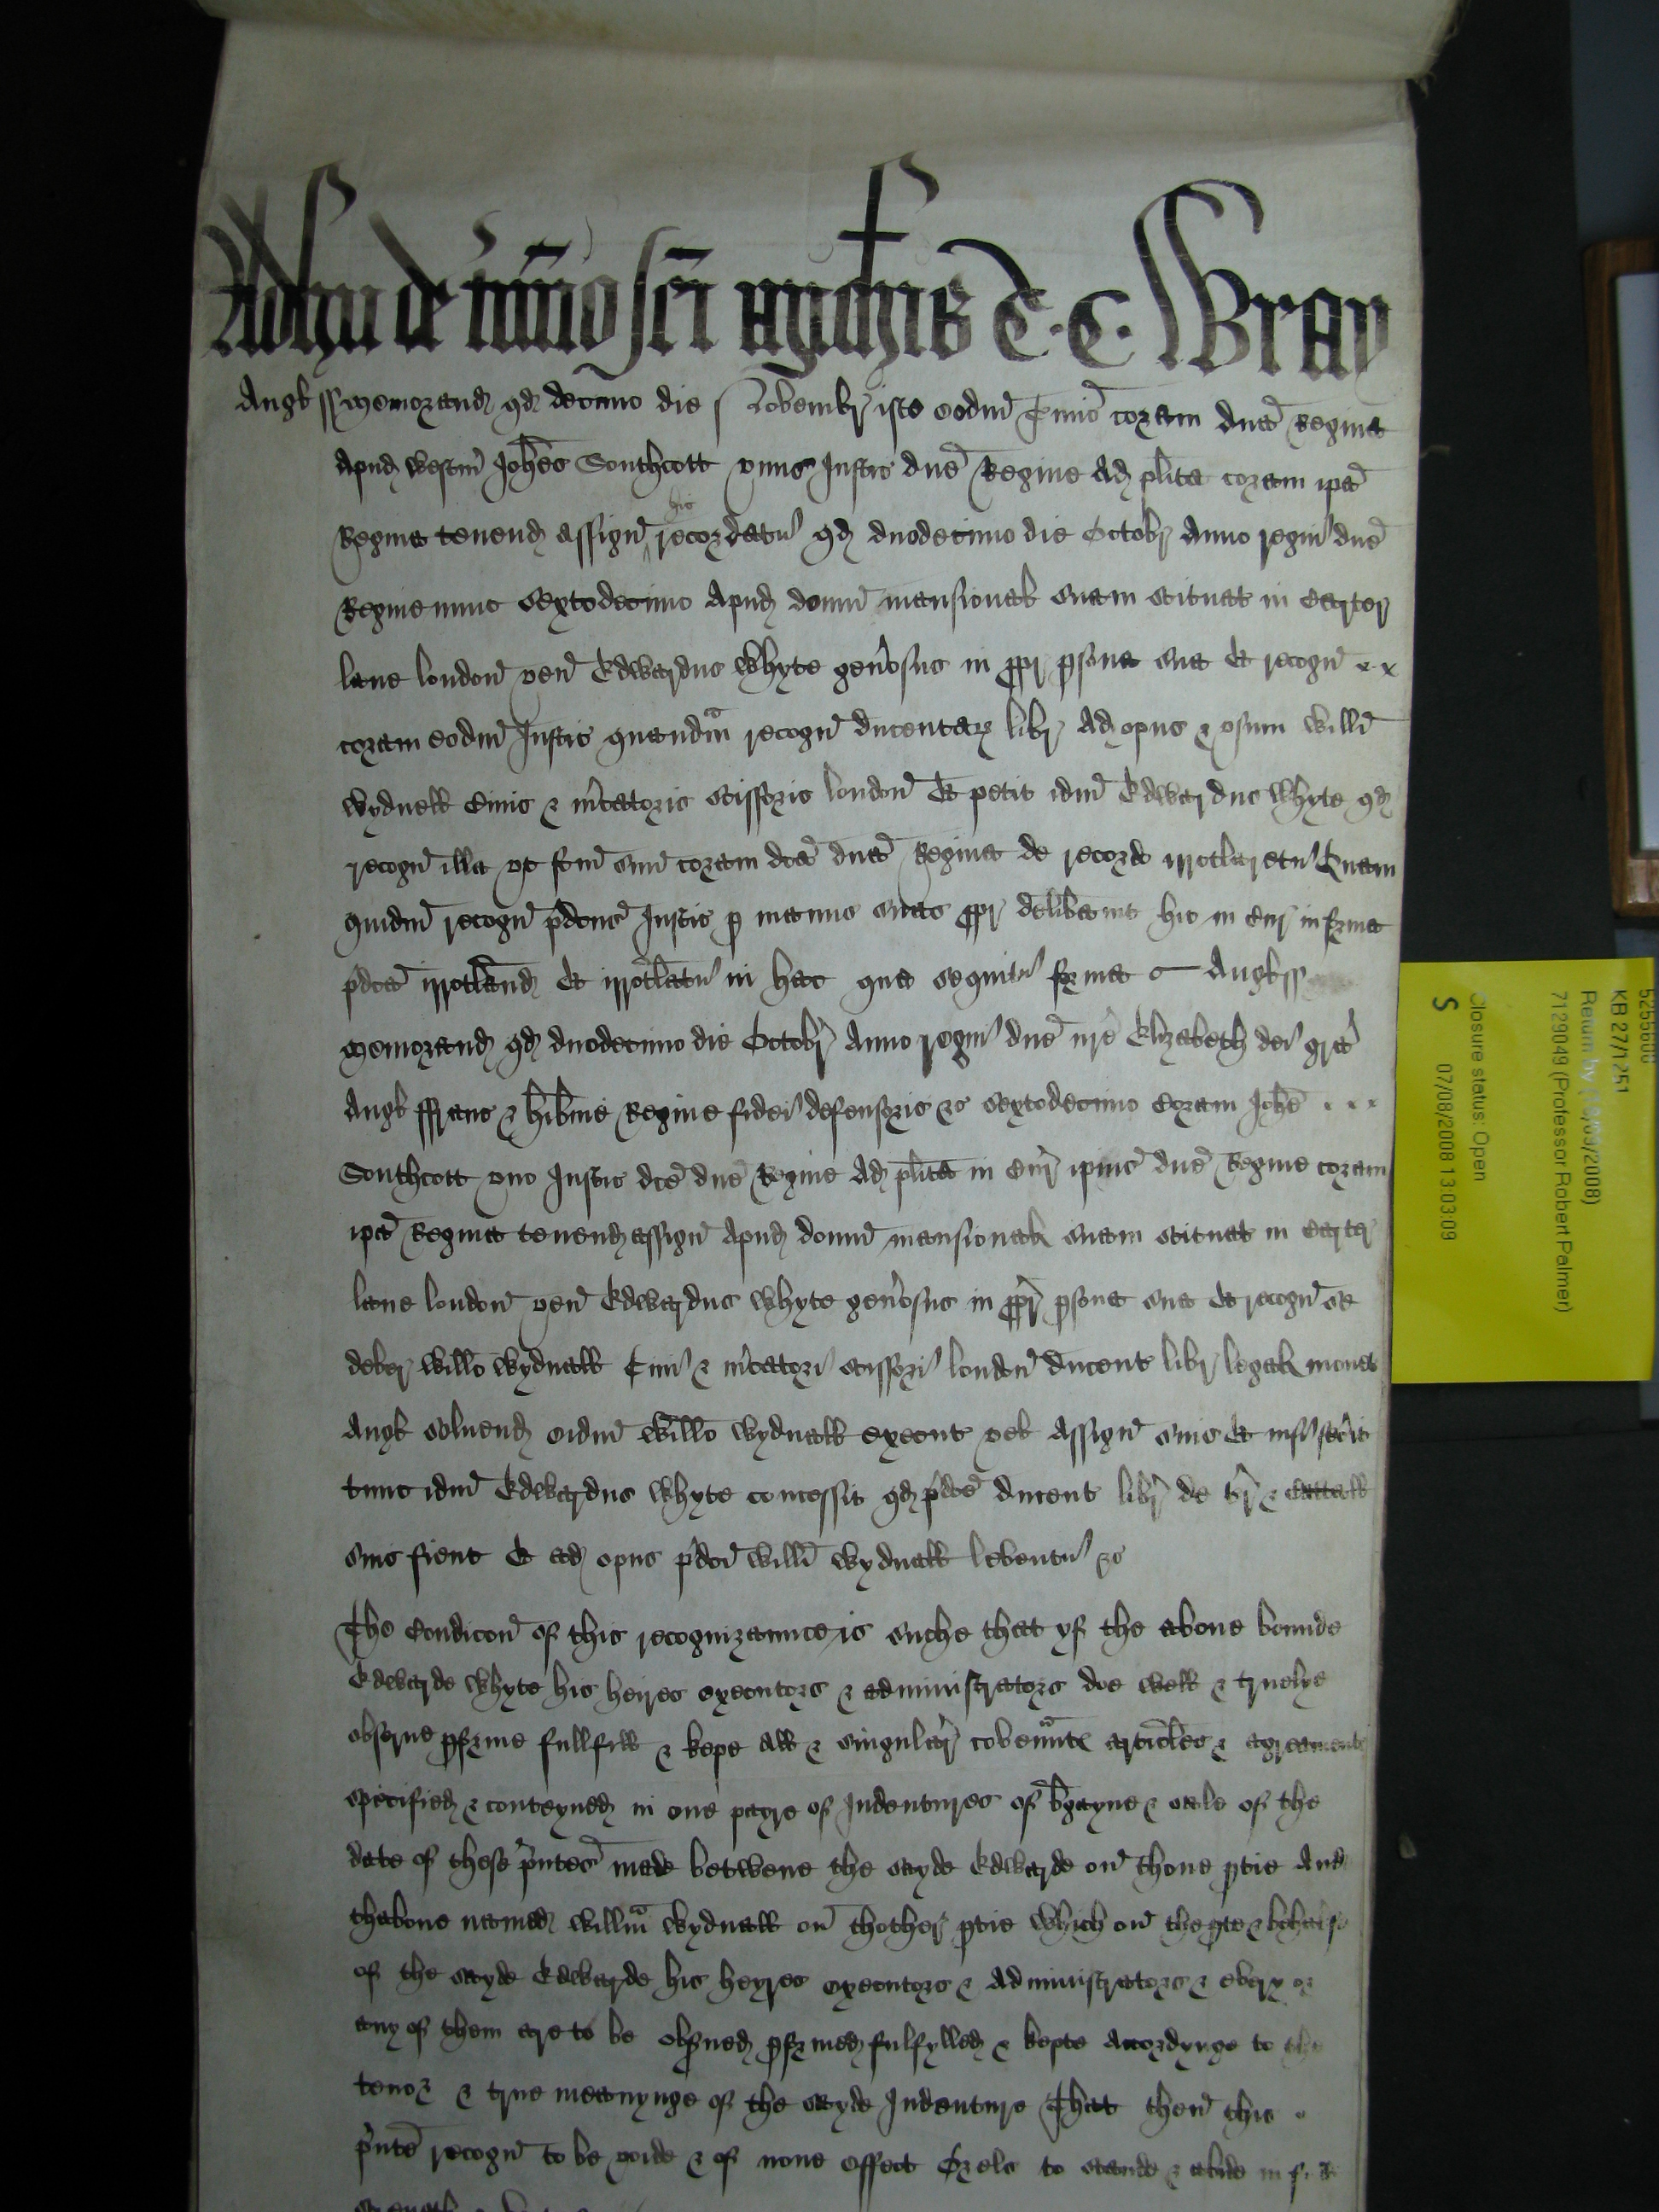 Adhuc de t'mino sci Mich'is T. C. Wray
Angl ss Memorand qd decimo die Novembr isto eodm T'mio coram dna Regina
apud Westm Johes Southcott unus Justic dne Regine ad plita coram ipa
Regina tenend assign hic recordatr qd duodecimo die Octobr anno regni dne
Regine nunc sextodecimo apud domu mansional suam scituat in Carter
lane london ven Edwardus Whyte generosus in ppr psona sua Et recogn
coram eodm Justic quandam recogn ducentar libr ad opus & usum Willi
Wydnell Civis & m'catoris scissoris london Et petit idm Edwardus Whyte qd
recogn illa coram dca dna Regina de recordo irrotlaretr Quam
quidm recogn pdcus Justic p manus suas ppr delibavit hic in Cur in forma
pdca irrotland Et irrotlatr in hac que sequitr forma Angl ss
Memorand qd duodecimo die Octobr Anno regni dne nre Elizabeth dei gra
Angl ffranc & hibnie Regine fidei defensoris &c sextodecimo Coram Johe
Southcott uno Justic dce dne Regine ad plita in Cur ipius dne Regine coram
ipa Regina tenend assign apud domu mansional suam scituat in Carter
lane london ven Edwardus Whyte generosus in ppr psona sua Et recogn se
deber Willo Wydnall Civi & m'catori scissori london ducent libr legal monet
Angl solvend eidm Willo Wydnall execut vel assign suis Et nisi fecit
tunc idm Edwardus Whyte concessit qd pdce ducent libr de terr & catall
suis fient Et ad opus pdci Willi Wydnall leventr &c
The Condicon of this recognizaunce is suche that yf the above bounde
Edwarde Whyte his heires executors & administrators doe well & truelye
observe pforme fullfill & kepe all & singuler covenntes articles & agreaments
specified & conteyned in one payre of Indentures of bgayne & sale of the
date of these pntes made betwene the sayde Edwarde on thone ptie And
thabove named Willm Wydnall on thother ptie Which on the pte & behalf
of the sayde Edwarde his heyres executors & Administrators & every or
any of them are to be observed pformed fulfylled & kepte accordynge to the
tenor & true meanynge of the sayde Indenture That then this
pnte recogn to be voide & of none effect Or els to stande & abide in
5255600
KB 27/1251
Return by (13/09/2008)
7129049 (Professor Robert Palmer)
Closure status: Open
S 07/08/2008 13:03:09